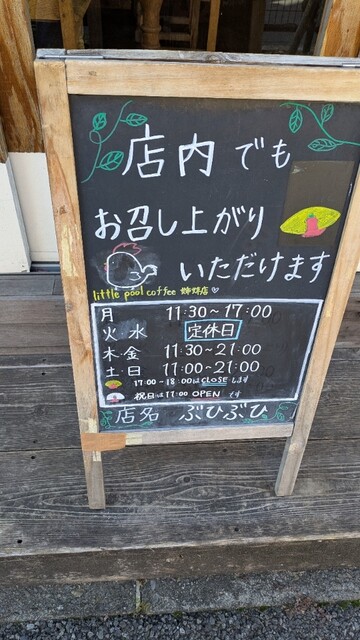 店内でも
お召し上がり
いただけます
little pool coffee 姉妹店♡
月 11:30~17:00
火・水 定休日
木・金 11:30~21:00
土・日 11:00~21:00
17:00-18:00はCLOSEします
祝日は11:00 OPENです
店名 ぶひぶひ